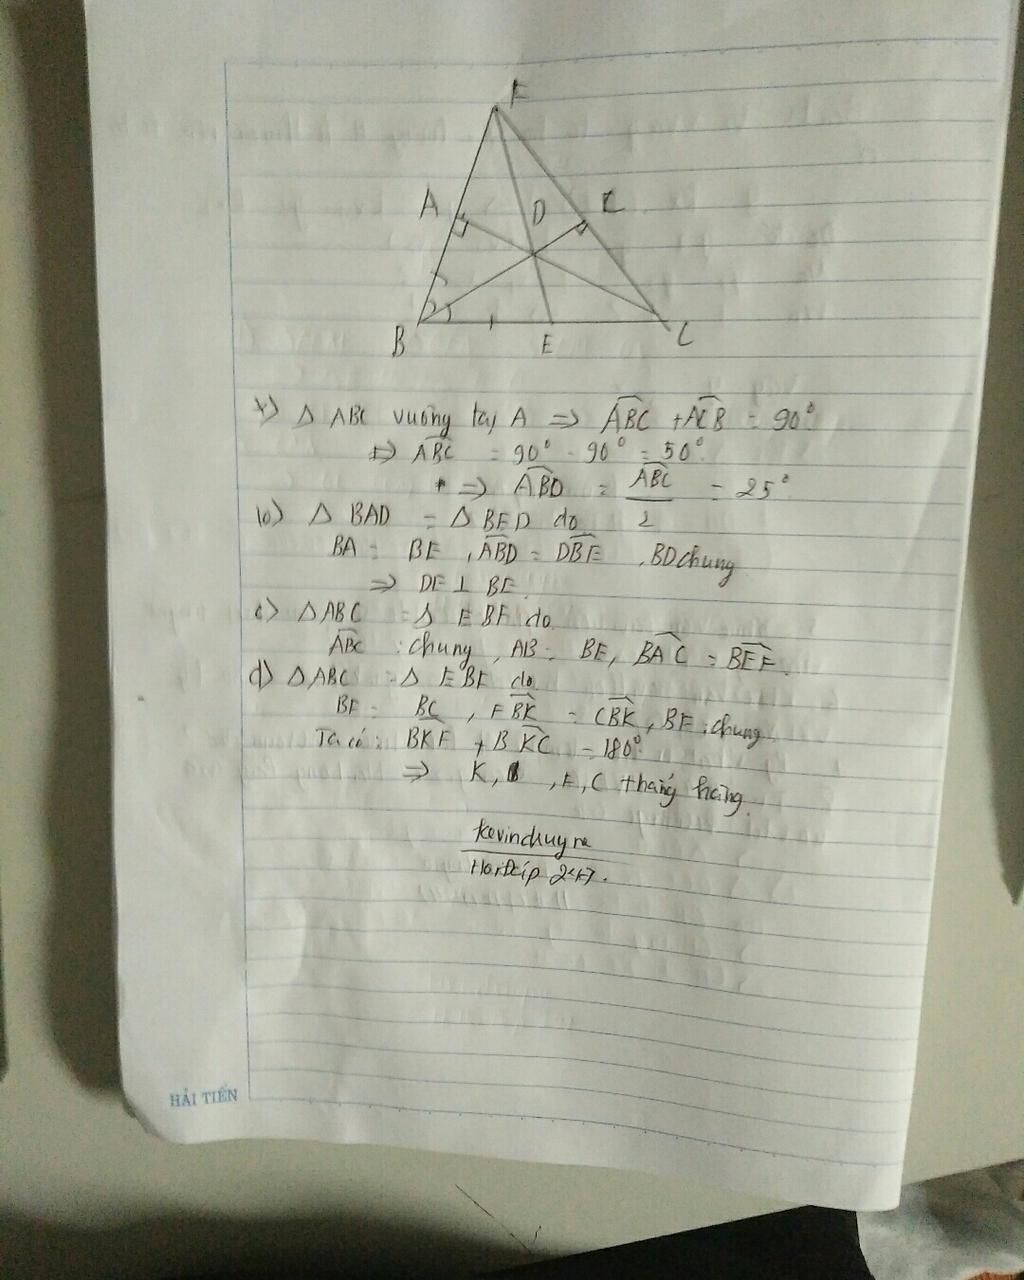 F
A
D
K
B
E
C
Δ ABC vuông tại A => ABC + ACB = 90°
=> ABC = 90° - 90° = 50°.
=> ABD = ABC / 2 = 25°
b) Δ BAD = Δ BED do
BA = BE, ABD = DBE, BD chung
=> DE ⊥ BE.
c) Δ ABC = Δ EBF do
ABC : chung, AB = BE, BAC = BEF.
d) Δ ABC = Δ EBF do
BF = BC, FBK = CBK, BF : chung
Ta có: BKF + BKC = 180°
=> K, , F, C thẳng hàng.
kevinchuyne
247.
HẢI TIẾN